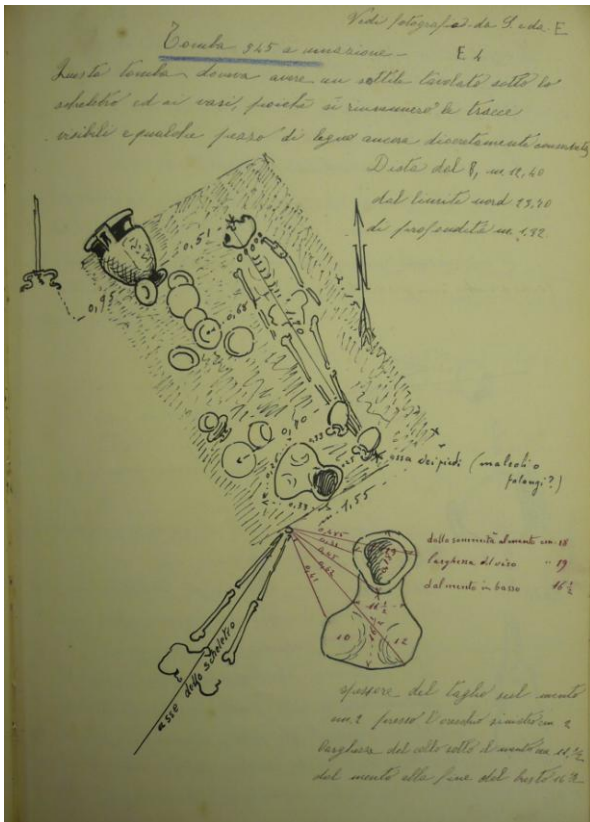 Vedi fotografia da S. e da E
Tomba 945 a umazione -
E 4
Questa tomba doveva avere un sottile tavolato sotto lo
scheletro ed ai vasi, poichè si rinvennero le tracce
visibili e qualche pezzo di legno ancora discretamente conservato
Dista dal 8, m 12,40
dal limite nord 29,70
di profondità m. 1,92
0,51
0,95
0,68
1,20
2,15
N
0,70
0,33
0,25
0,39
1,55
ossa dei piedi (malcoli o
falangi?)
0,485
0,45
0,41
dalla sommità al mento cm. 18
larghezza del viso " 19
dal mento in basso 16 ½
11 ½
10
12
asse dello scheletro
spessore del taglio sul mento
cm. 2 presso l'orecchio sinistro cm 2
larghezza del collo sotto il mento cm 11,½
dal mento alla fine del busto 16 ½